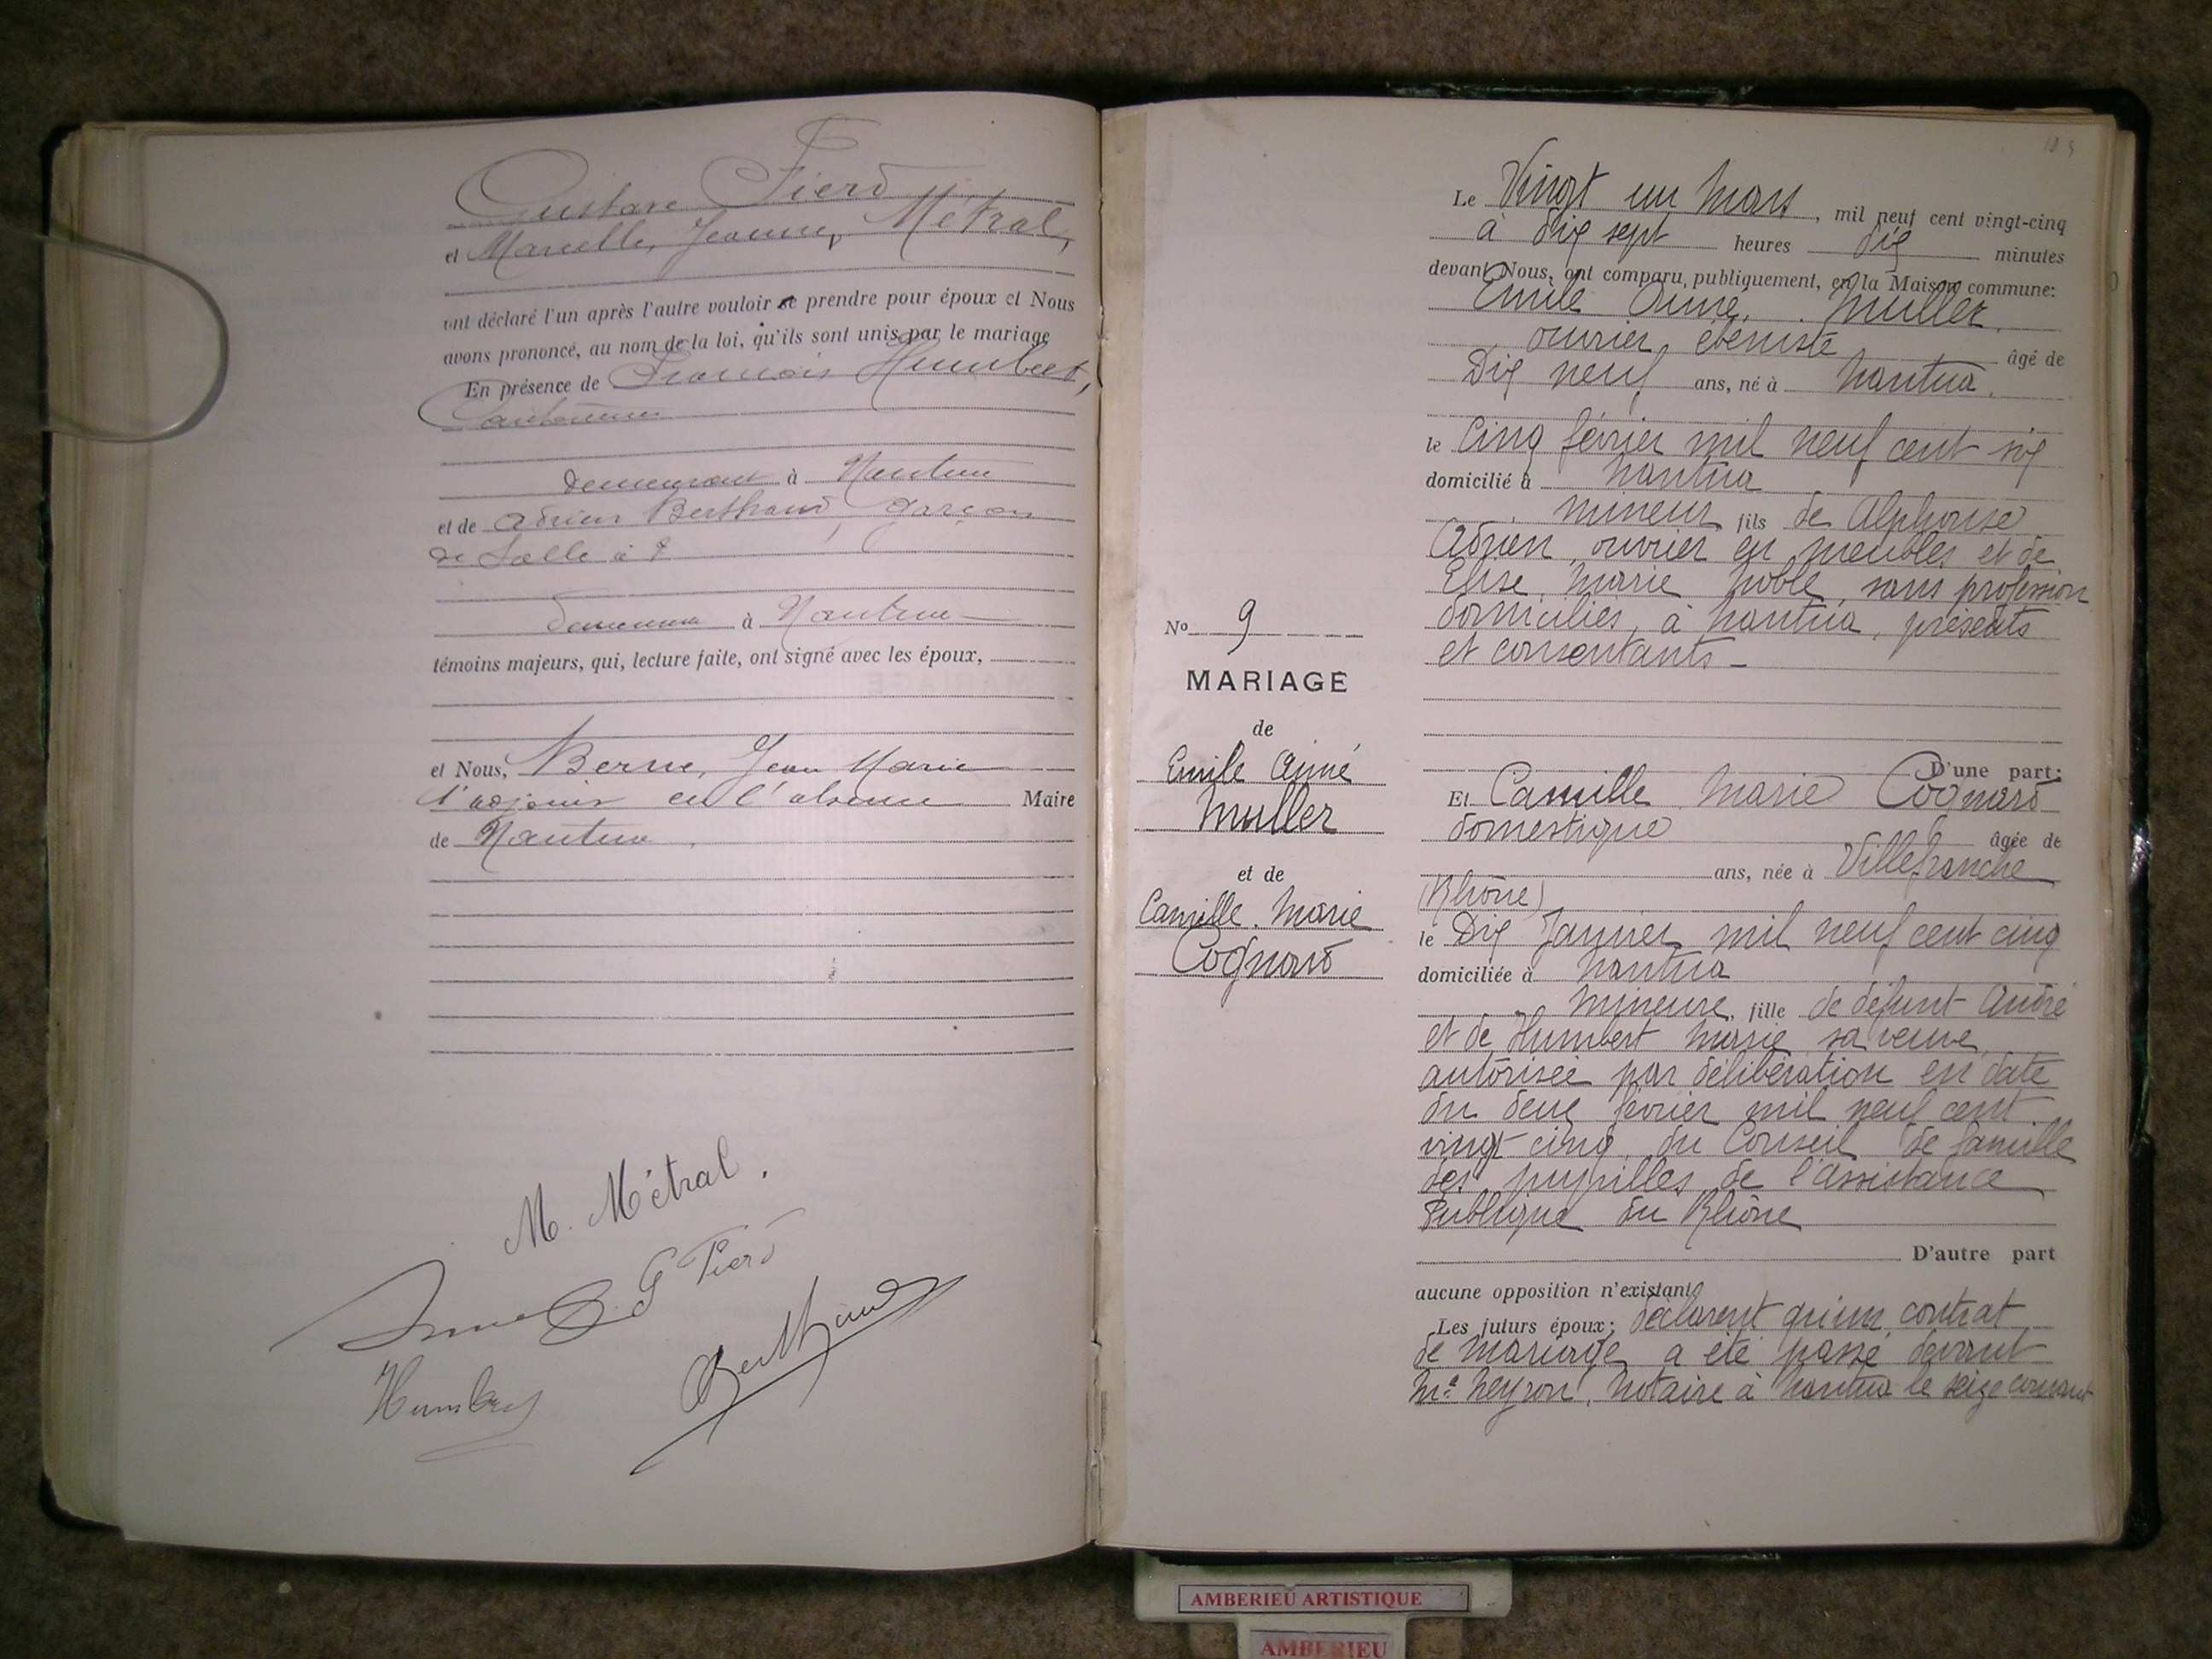 Gustave Pierd
et Marcelle, Jeanne, Métral,
ont déclaré l'un après l'autre vouloir se prendre pour époux et Nous
avons prononcé, au nom de la loi, qu'ils sont unis par le mariage
En présence de François Humbert,
Cantonnier
demeurant à Nantua
et de Adrien Berthand, garçon
de Salle à
demeurant à Nantua
témoins majeurs, qui, lecture faite, ont signé avec les époux,
et Nous, Berne, Jean Marie
l'adjoint en l'absence Maire
de Nantua
M. Métral.
G Pierd
Humbert
Berthand
Le Vingt un Mars, mil neuf cent vingt-cinq
à dix sept heures dix minutes
devant Nous, ont comparu, publiquement, en la Maison commune:
Emile Aimé Muller,
ouvrier ébéniste âgé de
Dix neuf ans, né à Nantua.
le Cinq février mil neuf cent six
domicilié à Nantua
mineur, fils de Alphonse
Adrien, ouvrier en meubles et de
Elise, Marie Noble, sans profession
domiciliés, à Nantua, présents
et consentants -
D'une part;
Et Camille Marie Cognard
domestique âgée de
ans, née à Villefranche
(Rhône)
le Dix Janvier mil neuf cent cinq
domiciliée à Nantua
mineure, fille de défunt André
et de Humbert Marie sa veuve,
autorisée par délibération en date
du deux février mil neuf cent
vingt-cinq, du Conseil de famille
des pupilles de l'assistance
Publique du Rhône
D'autre part
aucune opposition n'existant
Les futurs époux; déclarent qu'un contrat
de mariage a été passé devant
Me Neyron, Notaire à Nantua le seize courant
No 9
MARIAGE
de
Emile Aimé
Muller
et de
Camille. Marie
Cognard
AMBERIEU ARTISTIQUE
AMBERIEU